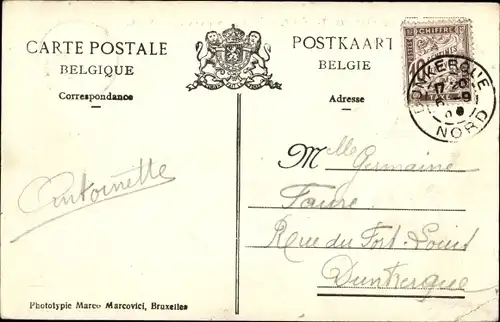 CARTE POSTALE
BELGIQUE
Correspondance
POSTKAART
BELGIE
Adresse
CHIFFRE
DUNKERQUE
NORD
Antoinette
Mlle Germaine
Faure
Rue du Fort-Louis
Dunkerque
Phototypie Marco Marcovici, Bruxelles